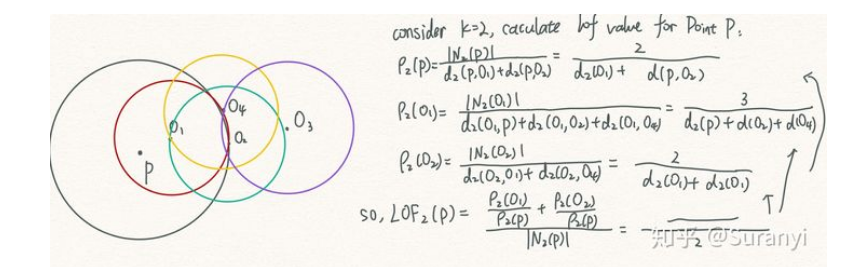 consider k=2, caculate lof value for Point P:
P₂(p)= |N₂(p)| / d₂(p,O₁)+d₂(p,O₂) = 2 / d₂(O₁)+ d(p,O₂)
P₂(O₁)= |N₂(O₁)| / d₂(O₁,p)+d₂(O₁,O₂)+d₂(O₁,O₄) = 3 / d₂(p)+d(O₂)+d(O₄)
P₂(O₂)= |N₂(O₂)| / d₂(O₂,O₁)+d₂(O₂,O₄) = 2 / d₂(O₁)+d₂(O₁)
so, LOF₂(p)= P₂(O₁)/P₂(p) + P₂(O₂)/P₂(p) / |N₂(p)| = / 2
O₄
O₁
O₂
O₃
P
知乎 @Suranyi